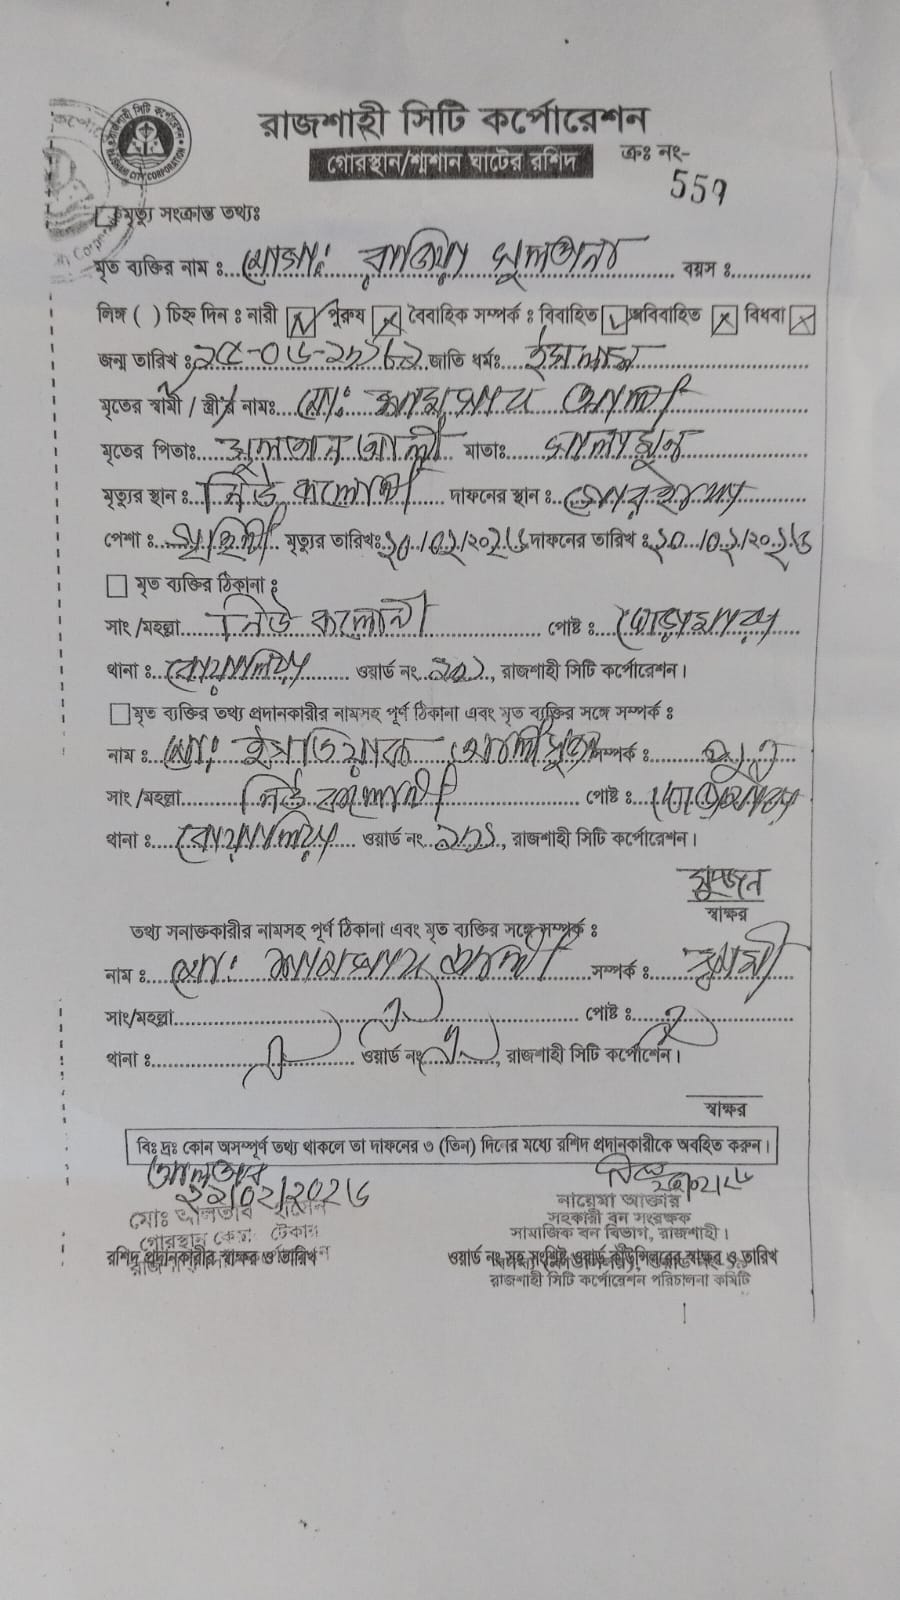 রাজশাহী সিটি কর্পোরেশন
গোরস্থান/শ্মশান ঘাটের রশিদ
ক্রঃ নং-
557
মৃত্যু সংক্রান্ত তথ্যঃ
মৃত ব্যক্তির নাম : মোসাঃ রাজিয়া সুলতানা বয়স :
লিঙ্গ ( ) চিহ্ন দিন : নারী পুরুষ বৈবাহিক সম্পর্ক : বিবাহিত অবিবাহিত বিধবা
জন্ম তারিখ : জাতি ধর্মঃ ইসলাম
মৃতের স্বামী / স্ত্রী'র নামঃ মোঃ আলী
মৃতের পিতাঃ সুলতান আলী মাতাঃ
মৃত্যুর স্থান : নিউ কলোনী দাফনের স্থান :
পেশা : গৃহিনী মৃত্যুর তারিখঃ ১০/০২/২০২৬ দাফনের তারিখ : ১০/০২/২০২৬
মৃত ব্যক্তির ঠিকানা :
সাং /মহল্লা নিউ কলোনী পোষ্ট : ঘোড়ামারা
থানা : বোয়ালিয়া ওয়ার্ড নং , রাজশাহী সিটি কর্পোরেশন।
মৃত ব্যক্তির তথ্য প্রদানকারীর নামসহ পূর্ণ ঠিকানা এবং মৃত ব্যক্তির সঙ্গে সম্পর্ক :
নাম : মোঃ ইসতিয়াক আলী সুজন সম্পর্ক : পুত্র
সাং /মহল্লা নিউ কলোনী পোষ্ট : ঘোড়ামারা
থানা : বোয়ালিয়া ওয়ার্ড নং , রাজশাহী সিটি কর্পোরেশন।
সুজন
স্বাক্ষর
তথ্য সনাক্তকারীর নামসহ পূর্ণ ঠিকানা এবং মৃত ব্যক্তির সঙ্গে সম্পর্ক :
নাম : মোঃ আলী সম্পর্ক : স্বামী
সাং/মহল্লা ঐ পোষ্ট : ঐ
থানা : ঐ ওয়ার্ড নং ঐ , রাজশাহী সিটি কর্পোরেশন।
স্বাক্ষর
বিঃ দ্রঃ কোন অসম্পূর্ণ তথ্য থাকলে তা দাফনের ৩ (তিন) দিনের মধ্যে রশিদ প্রদানকারীকে অবহিত করুন।
আলতাব
২২/০২/২০২৬
মোঃ আলতাব হোসেন
গোরস্থান কেয়ার টেকার
রশিদ প্রদানকারীর স্বাক্ষর ও তারিখ
নায়েমা আক্তার
সহকারী বন সংরক্ষক
সামাজিক বন বিভাগ, রাজশাহী।
ওয়ার্ড নং সহ সংশ্লিষ্ট ওয়ার্ড কাউন্সিলরের স্বাক্ষর ও তারিখ
রাজশাহী সিটি কর্পোরেশন পরিচালনা কমিটি